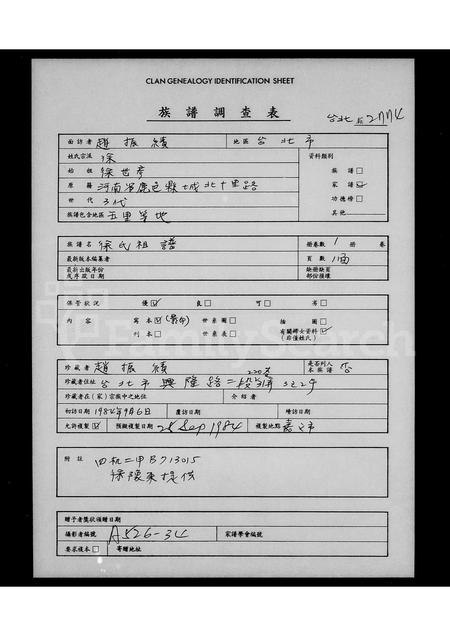 CLAN GENEALOGY IDENTIFICATION SHEET
族譜調查表
台北 2774
面訪者 趙振績 地區 台北市
姓氏宗派 徐 資料類別
始祖 徐世彥 族譜□
原籍 河南省鹿邑縣城北十里路 家譜☑
世代 3代 功德榜□
族譜包含地區 五里等地 其他
族譜名 徐氏祖譜 冊卷數 1 冊 卷
最新版本編纂者 頁數 1面
最新出版年份 缺冊缺頁
或序跋日期 部份損壞
保管狀況 優☑ 良□ 可□ 劣□
內容 寫本☑ 世系圖□ 插圖□
刊本□ 世系表□ 有關婦女資料☑
(非僅姓氏)
FamilySearch
珍藏者 趙振績 是否列入本族譜 否
珍藏者住址 台北市興隆路二段220巷 之2号
珍藏者在(家)宗族中之地位 介紹者
初訪日期 1984年9月6日 覆訪日期 續訪日期
允許複製☑ 預擬複製日期 25 Sep 1984 複製地點 嘉文市
附註 四机二甲B713015
徐懷東提供
贈予者獎狀頒贈日期
攝影者編號 A526-34 家譜學會編號
要求複本□ 寄贈地址